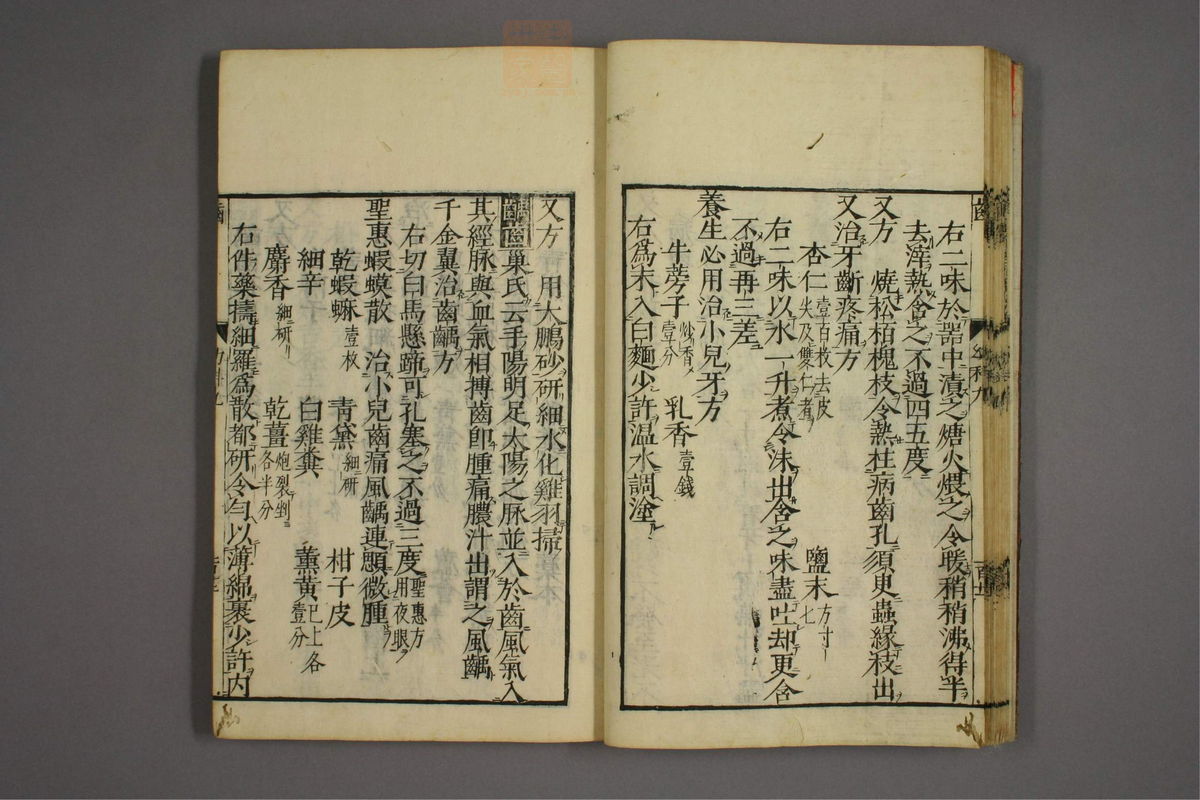 右二味於器中漬之煻火煨之令暖稍稍沸得半
去滓熱含之不過四五度
又方　燒松栢槐枝令熱柱病齒孔須更蟲緣枝出
又治牙齒斷疼痛方
杏仁壹百枚去皮尖及雙仁者　鹽末方寸七
右二味以水一升煮令沫出含之味盡吐却更含
不過再三差
養生必用治小兒牙方
牛蒡子炒香壹分　乳香壹錢
右爲末入白麵少許温水調塗
又方　用大鵬砂研細水化雞羽掃
齲齒巢氏云手陽明足太陽之脈並入於齒風氣入
其經脉與血氣相搏齒卽腫痛膿汁出謂之風齲
千金翼治齒齲方
右切白馬懸蹄可孔塞之不過三度聖惠方用夜眼
聖惠蝦蟆散　治小兒齒痛風齲連顋微腫
乾蝦蟆壹枚　青黛細研　柑子皮
細辛　白雞糞　薰黃已上各壹分
麝香細研　乾薑炮裂剉各半分
右件藥擣細羅爲散都研令勻以薄綿裹少許内